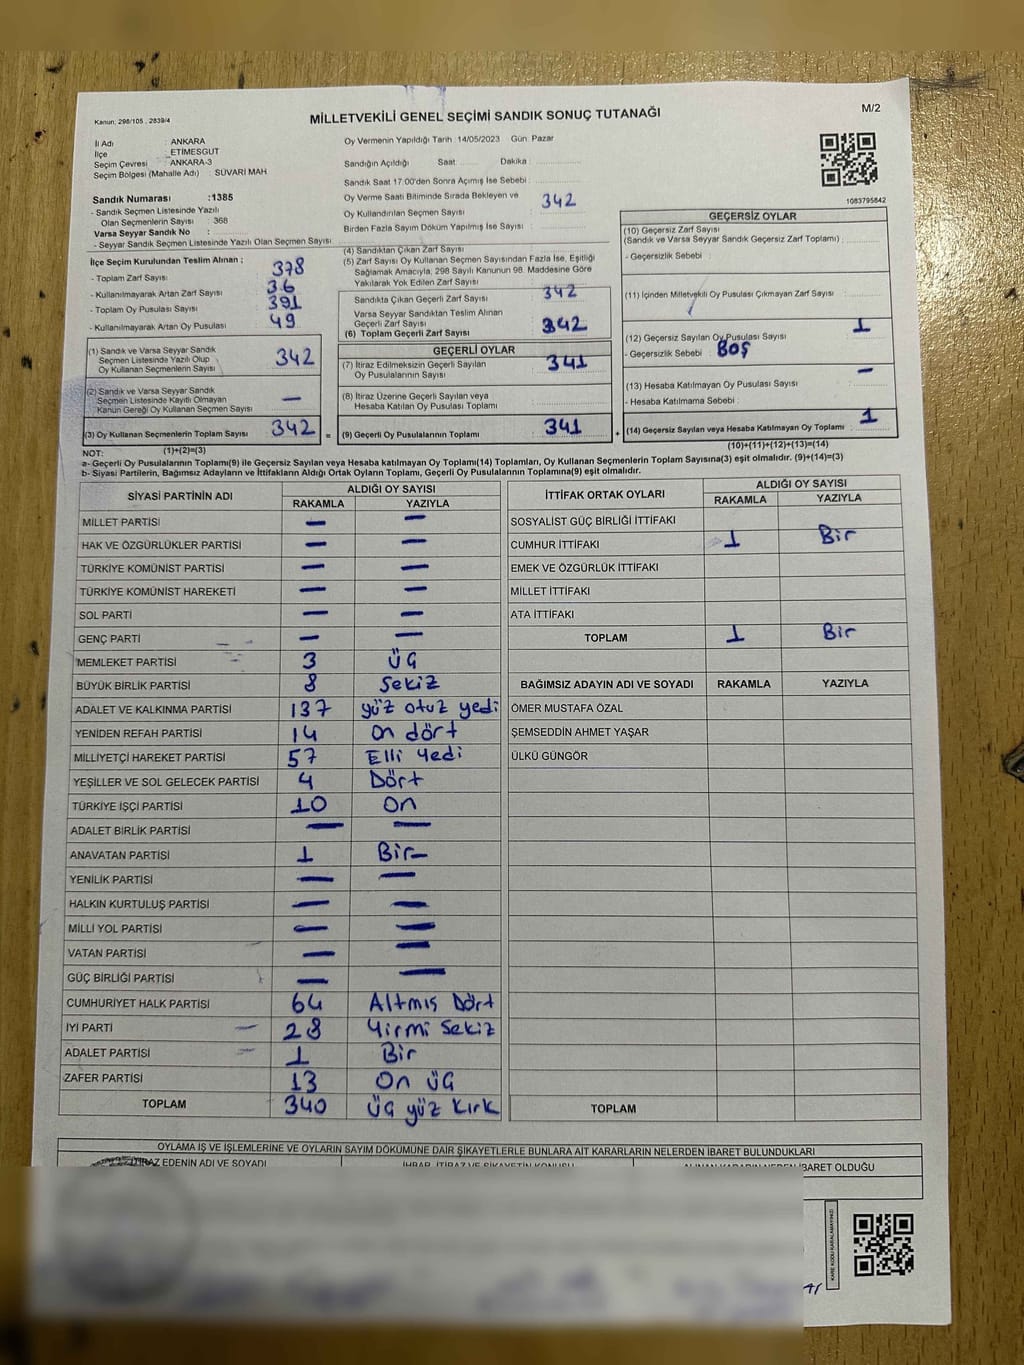 MİLLETVEKİLİ GENEL SEÇİMİ SANDIK SONUÇ TUTANAĞI
M/2
Kanun: 298/105 , 2839/4
İl Adı : ANKARA
İlçe : ETİMESGUT
Seçim Çevresi : ANKARA-3
Seçim Bölgesi (Mahalle Adı) : SÜVARİ MAH
Sandık Numarası :1385
- Sandık Seçmen Listesinde Yazılı
Olan Seçmenlerin Sayısı : 368
Varsa Seyyar Sandık No :
- Seyyar Sandık Seçmen Listesinde Yazılı Olan Seçmen Sayısı
Oy Vermenin Yapıldığı Tarih 14/05/2023 Gün: Pazar
Sandığın Açıldığı Saat: Dakika :
Sandık Saat 17:00'den Sonra Açımış İse Sebebi :
Oy Verme Saati Bitiminde Sırada Bekleyen ve
Oy Kullandırılan Seçmen Sayısı : 342
Birden Fazla Sayım Döküm Yapılmış İse Sayısı :
1083795842
İlçe Seçim Kurulundan Teslim Alınan ;
- Toplam Zarf Sayısı : 378
- Kullanılmayarak Artan Zarf Sayısı : 36
- Toplam Oy Pusulası Sayısı : 391
- Kullanılmayarak Artan Oy Pusulası : 49
(1) Sandık ve Varsa Seyyar Sandık
Seçmen Listesinde Yazılı Olup
Oy Kullanan Seçmenlerin Sayısı 342
(2) Sandık ve Varsa Seyyar Sandık
Seçmen Listesinde Kayıtlı Olmayan
Kanun Gereği Oy Kullanan Seçmen Sayısı —
(3) Oy Kullanan Seçmenlerin Toplam Sayısı 342 =
(4) Sandıktan Çıkan Zarf Sayısı
(5) Zarf Sayısı Oy Kullanan Seçmen Sayısından Fazla İse, Eşitliği
Sağlamak Amacıyla, 298 Sayılı Kanunun 98. Maddesine Göre
Yakılarak Yok Edilen Zarf Sayısı :
Sandıkta Çıkan Geçerli Zarf Sayısı 342
Varsa Seyyar Sandıktan Teslim Alınan
Geçerli Zarf Sayısı
(6) Toplam Geçerli Zarf Sayısı 342
GEÇERLİ OYLAR
(7) İtiraz Edilmeksizin Geçerli Sayılan
Oy Pusulalarının Sayısı : 341
(8) İtiraz Üzerine Geçerli Sayılan veya
Hesaba Katılan Oy Pusulası Toplamı
(9) Geçerli Oy Pusulalarının Toplamı 341 +
GEÇERSİZ OYLAR
(10) Geçersiz Zarf Sayısı
(Sandık ve Varsa Seyyar Sandık Geçersiz Zarf Toplamı) :
- Geçersizlik Sebebi :
(11) İçinden Milletvekili Oy Pusulası Çıkmayan Zarf Sayısı :
(12) Geçersiz Sayılan Oy Pusulası Sayısı : 1
- Geçersizlik Sebebi : BOŞ
(13) Hesaba Katılmayan Oy Pusulası Sayısı : —
- Hesaba Katılmama Sebebi :
(14) Geçersiz Sayılan veya Hesaba Katılmayan Oy Toplamı : 1
NOT: (1)+(2)=(3)
(10)+(11)+(12)+(13)=(14)
a- Geçerli Oy Pusulalarının Toplamı(9) ile Geçersiz Sayılan veya Hesaba katılmayan Oy Toplamı(14) Toplamları, Oy Kullanan Seçmenlerin Toplam Sayısına(3) eşit olmalıdır. (9)+(14)=(3)
b- Siyasi Partilerin, Bağımsız Adayların ve İttifakların Aldığı Ortak Oyların Toplamı, Geçerli Oy Pusulalarının Toplamına(9) eşit olmalıdır.
SİYASİ PARTİNİN ADI ALDIĞI OY SAYISI
RAKAMLA YAZIYLA
MİLLET PARTİSİ — —
HAK VE ÖZGÜRLÜKLER PARTİSİ — —
TÜRKİYE KOMÜNİST PARTİSİ — —
TÜRKİYE KOMÜNİST HAREKETİ — —
SOL PARTİ — —
GENÇ PARTİ — —
MEMLEKET PARTİSİ 3 üç
BÜYÜK BİRLİK PARTİSİ 8 Sekiz
ADALET VE KALKINMA PARTİSİ 137 yüz otuz yedi
YENİDEN REFAH PARTİSİ 14 on dört
MİLLİYETÇİ HAREKET PARTİSİ 57 Elli yedi
YEŞİLLER VE SOL GELECEK PARTİSİ 4 Dört
TÜRKİYE İŞÇİ PARTİSİ 10 On
ADALET BİRLİK PARTİSİ — —
ANAVATAN PARTİSİ 1 Bir
YENİLİK PARTİSİ — —
HALKIN KURTULUŞ PARTİSİ — —
MİLLİ YOL PARTİSİ — —
VATAN PARTİSİ — —
GÜÇ BİRLİĞİ PARTİSİ — —
CUMHURİYET HALK PARTİSİ 64 Altmış Dört
İYİ PARTİ 28 Yirmi Sekiz
ADALET PARTİSİ 1 Bir
ZAFER PARTİSİ 13 On üç
TOPLAM 340 üç yüz kırk
İTTİFAK ORTAK OYLARI ALDIĞI OY SAYISI
RAKAMLA YAZIYLA
SOSYALİST GÜÇ BİRLİĞİ İTTİFAKI
CUMHUR İTTİFAKI 1 Bir
EMEK VE ÖZGÜRLÜK İTTİFAKI
MİLLET İTTİFAKI
ATA İTTİFAKI
TOPLAM 1 Bir
BAĞIMSIZ ADAYIN ADI VE SOYADI RAKAMLA YAZIYLA
ÖMER MUSTAFA ÖZAL
ŞEMSEDDİN AHMET YAŞAR
ÜLKÜ GÜNGÖR
TOPLAM
OYLAMA İŞ VE İŞLEMLERİNE VE OYLARIN SAYIM DÖKÜMÜNE DAİR ŞİKAYETLERLE BUNLARA AİT KARARLARIN NELERDEN İBARET BULUNDUKLARI
İTİRAZ EDENİN ADI VE SOYADI İHBAR, İTİRAZ VE ŞİKAYETİN KONUSU ALINAN KARARIN NEDEN İBARET OLDUĞU
KARE KODU KARALAMAYINIZ!